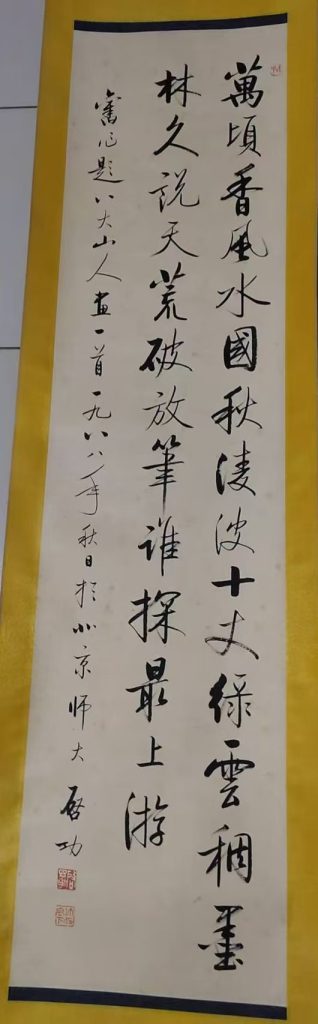 萬頃香風水國秋淩波十丈綠雲稠墨
林久説天荒破放筆誰探最上游
舊作題八大山人畫一首一九八八年秋日於北京师大 啓功